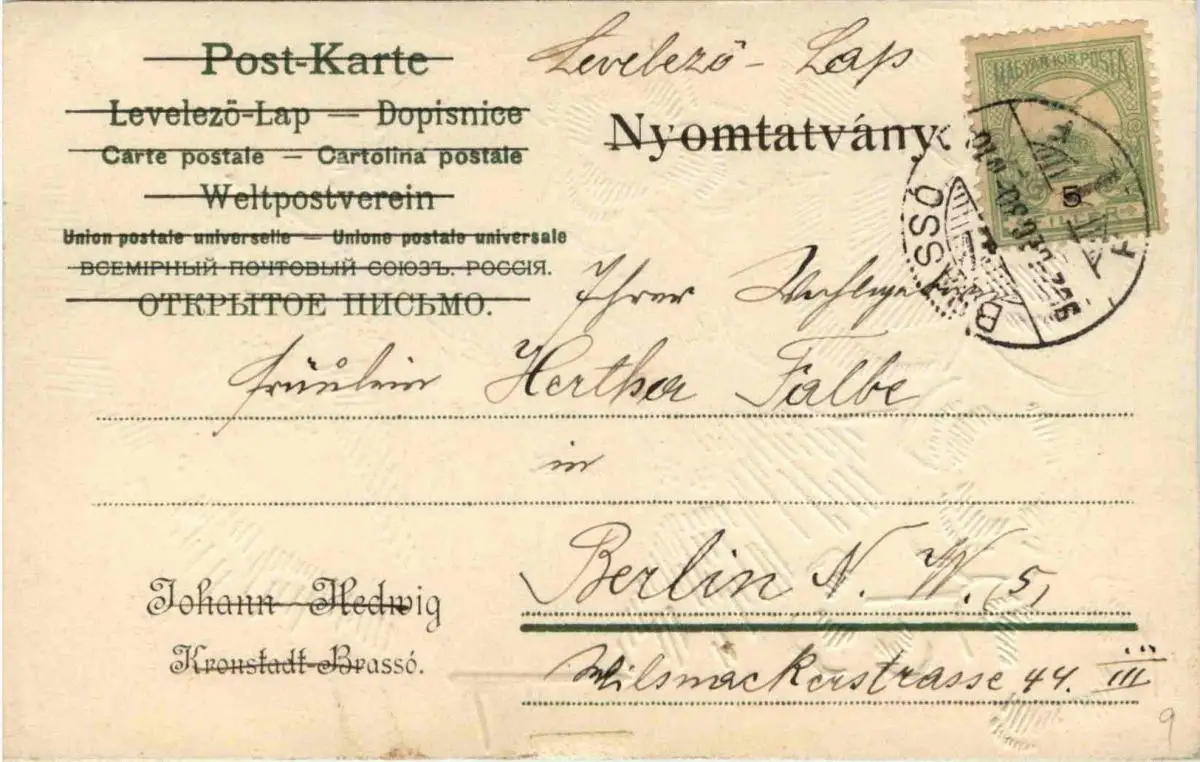 Post-Karte
Levelező-Lap — Dopisnice
Carte postale — Cartolina postale
Weltpostverein
Union postale universelle — Unione postale universale
ВСЕМІРНЫЙ ПОЧТОВЫЙ СОЮЗЪ. РОССІЯ.
ОТКРЫТОЕ ПИСЬМО.
Levelező-Lap
Nyomtatvány.
MAGYAR KIR. POSTA
5
FILLER
BRASSÓ
Ihrer
Fräulein Hertha Falbe
in
Berlin N. W. (5)
Wilsnackerstrasse 44. III
Johann Hedwig
Kronstadt-Brassó.
9